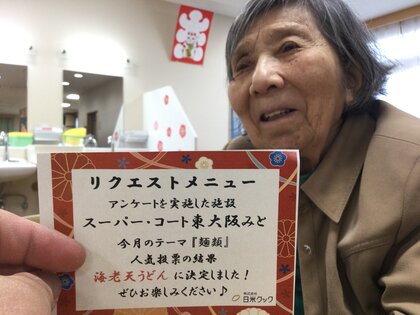 リクエストメニュー
アンケートを実施した施設
スーパー・コート東大阪みと
今月のテーマ『麺類』
人気投票の結果
海老天うどんに決定しました！
ぜひお楽しみください♪
株式会社
日米クック